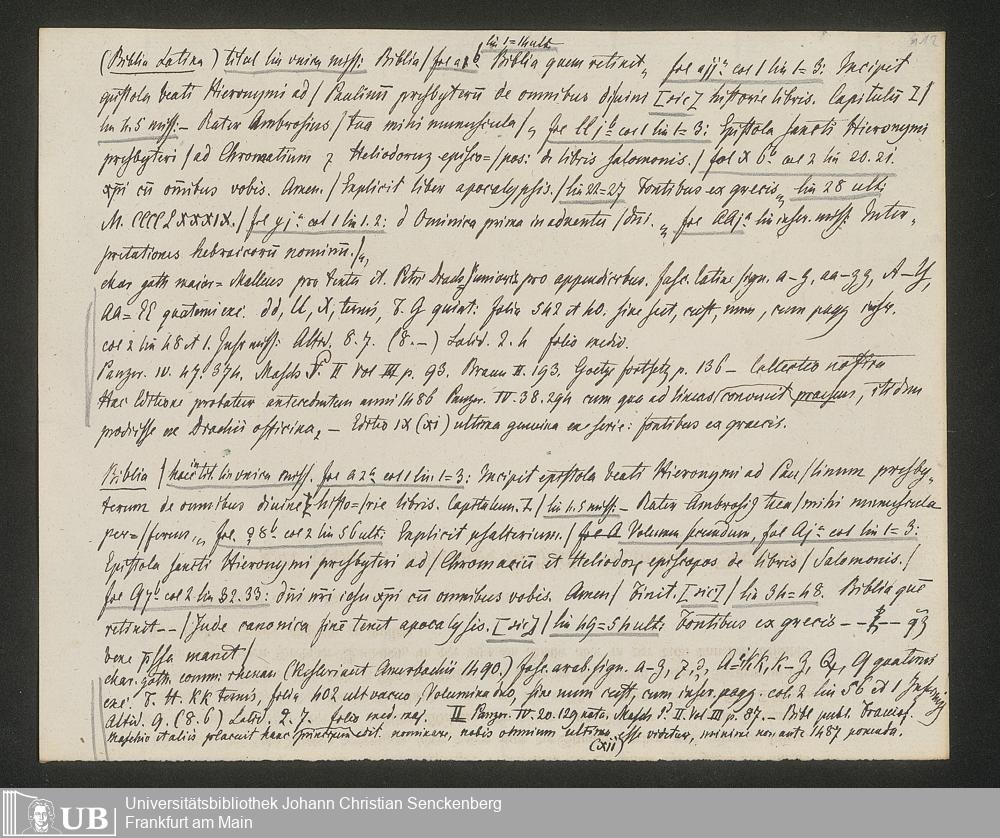 lin 1=14 ult.
(Biblia Latina) titul lin unica miss: Biblia / fol a 1 b Biblia quem retinet „ fol ajj a col 1 lin 1=3: Incipit
epistola beati Hieronymi ad / Paulinū presbyterū de omnibus diuini [sic] historie libris. Capitulū I /
lin 4.5 miss: – Rater Ambrosius / tua mihi munuscula / „ fol ll j b col 1 lin 1=3: Epistola sancti Hieronymi
presbyteri / ad Chromatium z Heliodoruz episco= / pos: de libris salomonis. / fol X 6 b col 2 lin 20.21.
xpi cū omibus vobis. Amen. / Explicit liber apocalypsis. / lin 22=27 Fontibus ex grecis „ lin 28 ult:
M. CCCC LXXXIX. / fol y j a col 1 lin 1.2: d Ominica prima in aduentu / dni. „ fol AA j a lin infer. miss: Inter-
pretationes hebraicorū nominū. / „
char goth maior= Malleus pro textu et Petri Drachs Junioris pro appendicibus. fasc. latine sign. a–z, aa–zz, A–Y,
AA=EE quaterni exc. dd, ll, X, ternis, T. G quint: folia 542 et 40. sine sect, cust, num, cum pagg inscr.
col 2 lin 48 et 1. Inscr miss: Altid. 8. 7. (8.–) Latid. 2. 4 folio medio.
Panzer. IV. 47. 374. Masch P. II Vol III p. 93. Braun II. 193. Goetze fortsetz p. 136 – Collectio nostra
Hac Editione probatur antecedentem anni 1486 Panzer. IV. 38. 294 cum qua ad lineas convenit praesens, itidem
prodiisse ex Drachii officina, – Editio IX (XI) ultima genuina ex serie: fontibus ex graecis.
Biblia / haec in tit. lin unica miss. fol a 2 a col 1 lin 1=3: Incipit epistola beati Hieronymi ad Pau / linum presby-
terum de omnibus diuine histo= / rie libris. Capitulum. I / lin 4.5 miss: – Rater Ambrosius tua / mihi munuscula
per= / ferens, „ fol. 8 b. col 2 lin 56 ult: Explicit psalterium. / fol A Volumen secundum, fol A j a col lin 1=3:
Epistola sancti Hieronymi presbyteri ad / Chromaciū et Heliodorz episcopos de libris / Salomonis. /
fol Q 7 b col 2 lin 32.33: dni nri iesu xpi cū omnibus vobis. Amen / Finit. [sic] / lin 34=48. Biblia quē
retinet – – / Jude canonica finē tenet apocalysis. [sic] / lin 49=54 ult: Fontibus ex grecis – – – –
bene pssa manet /
char. goth. comm: rhenan (Kesleriani Amerbachii 1490.) fasc. arab. sign. a–z, A=KK, Q quaterni
exc. T. H. KK ternis, folia 402 ult vacuo, Volumina duo, sine num cust, cum infer. pagg. col. 2 lin 56 et 1 Inscr miss
Altid. 9. (8. 6) Latid. 2. 7. folio med. maj. II Panzer. IV. 20. 129 nota. Masch P. II. Vol III p. 87. – Bibl publ. Francof.
Maschio et aliis placuit hanc principum edit. nominare, nobis omnium ultima (XII) esse videtur, minime non ante 1487 ponenda.
UB
Universitätsbibliothek Johann Christian Senckenberg
Frankfurt am Main